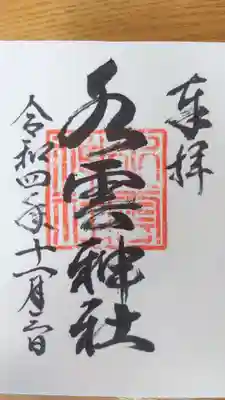 奉拝
雲神社
令和四年十一月三日